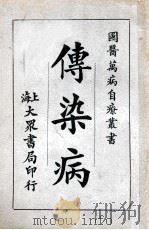 國醫萬病自療叢書
傳染病
上海
大眾書局印行